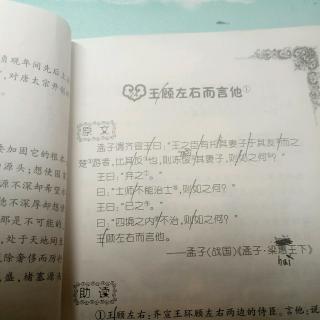 贞观年间先后上
，对唐太宗开创
王顾左右而言他①
原文
孟子谓齐宣王曰：“王之臣有托其妻子于其友而之
楚游者，比其反也，则冻馁其妻子，则如之何？”
王曰：“弃之。”
曰：“士师不能治士，则如之何？”
王曰：“已之。”
曰：“四境之内不治，则如之何？”
王顾左右而言他。
——孟子(战国)《孟子·梁惠王下》
hui
助读
①王顾左右：齐宣王环顾左右两边的侍臣。言他：说
要加固它的根本
源头；想使国家
源不深却希望水
德不深厚却想
那是不可能的
，处于天地间
戒除奢侈而厉行
盛，堵塞源头